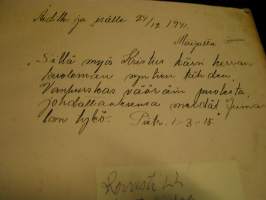 Äidille ja isälle 24/12 1941.
Maijalta
"Sillä myös Kristus kärsi kerran
kuoleman syntien tähden,
Vanhurskas vääräin puolesta,
johdattaaksensa meidät Juma
lan tykö. Piet. 1-3-18"